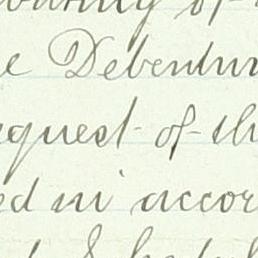 of
e Debentur
equest of th
ed in accor